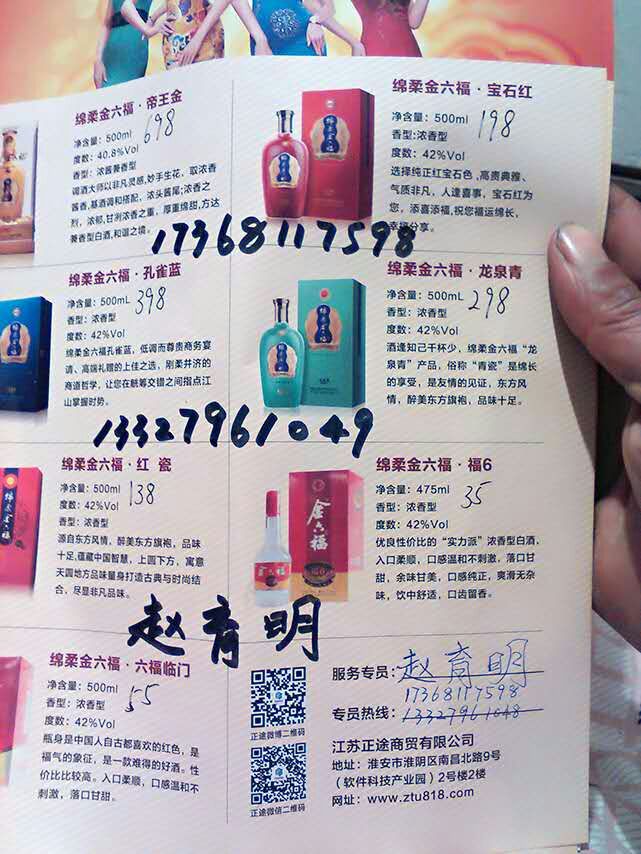 绵柔金六福·帝王金
净含量：500ml
698
度数：40.8%Vol
香型：浓酱兼香型
调酒大师以非凡灵感,妙手生花，取浓香
酱香,基酒调和搭配，浓头酱尾;浓香之
烈，浓郁,甘冽浓香之重，厚重绵甜,方达
兼香型白酒,和谐之境。
绵柔金六福·宝石红
净含量：500ml
198
香型:浓香型
度数：42%Vol
选择纯正红宝石色,高贵典雅、
气质非凡，人逢喜事，宝石红为
您，添喜添福,祝您福运绵长，
幸福分享。
17368117598
绵柔金六福·孔雀蓝
净含量：500mL
398
香型：浓香型
度数：42%Vol
绵柔金六福孔雀蓝，低调而尊贵商务宴
请、高端礼赠的上佳之选，刚柔并济的
商道哲学，让您在觥筹交错之间指点江
山掌握时势。
绵柔金六福·龙泉青
净含量：500mL
298
香型：浓香型
度数：42%Vol
酒逢知己千杯少，绵柔金六福“龙
泉青”产品，俗称“青瓷”是绵长
的享受，是友情的见证，东方风
情，醉美东方旗袍，品味十足。
13327961049
绵柔金六福·红 瓷
净含量：500ml
138
度数：42%Vol
香型：浓香型
源自东方风情，醉美东方旗袍，品味
十足,蕴藏中国智慧，上圆下方，寓意
天圆地方品味量身打造古典与时尚结
合、尽显非凡品味。
绵柔金六福·福6
净含量：475ml
35
香型：浓香型
度数：42%Vol
优良性价比的“实力派”浓香型白酒，
入口柔顺，口感温和不刺激，落口甘
甜，余味甘美，口感纯正，爽滑无杂
味，饮中舒适，口齿留香。
金六福
金六福
福6
赵育明
绵柔金六福·六福临门
净含量：500ml
55
香型：浓香型
度数：42%Vol
瓶身是中国人自古都喜欢的红色，是
福气的象征，是一款难得的好酒。性
价比比较高。入口柔顺，口感温和不
刺激，落口甘甜。
正途微博二维码
正途微信二维码
服务专员:赵育明
17368117598
专员热线：13327961048
江苏正途商贸有限公司
地址：淮安市淮阴区南昌北路9号
（软件科技产业园）2号楼2楼
网址：www.ztu818.com